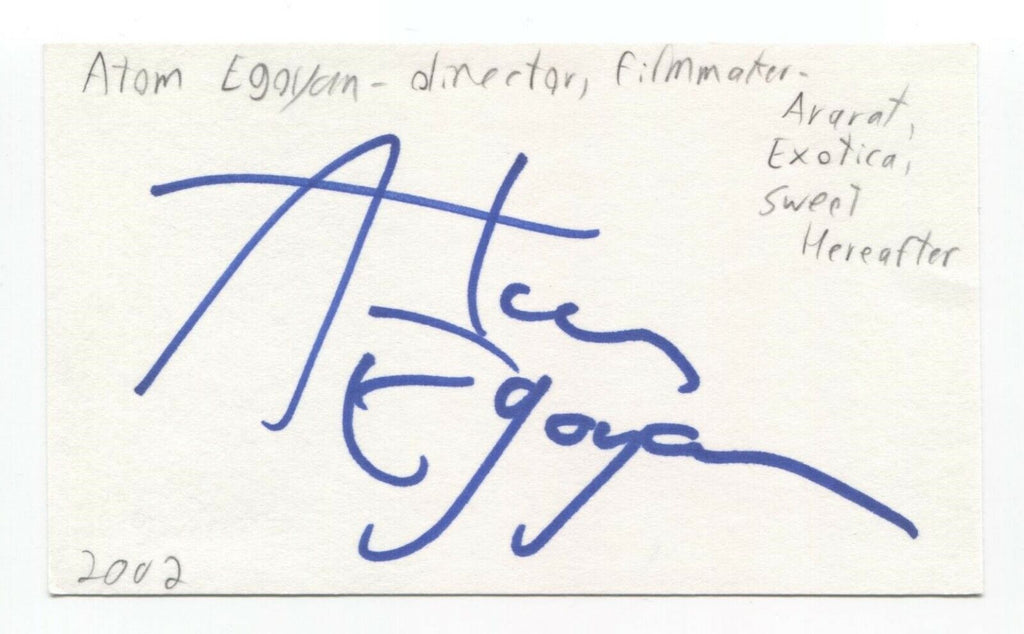 Atom Egoyan - director, filmmaker-
Ararat,
Exotica,
Sweet
Hereafter
Atom
Egoyan
2002